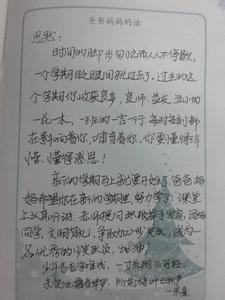 爸爸妈妈的话
思然：
时间的脚步匆匆而人不停歇，
一个学期眨眼间就过去了。过去的这
个学期你收获良多，良师、益友、五小的
一花一木、一班的一言一行，每时每刻都
在影响着你，哺育着你，你要懂得珍
惜、懂得感恩！
新的学期马上就要开始，爸爸妈
妈希望你在新的学期里，努力学习，课堂
上认真听讲，老师提问积极举手发言，团结
同学，文明有礼，争取加入少先队，成为一
名优秀的少先队员，加油！
少年易老学难成，一寸光阴不可轻。
未觉池塘春草梦，阶前梧叶已秋声。